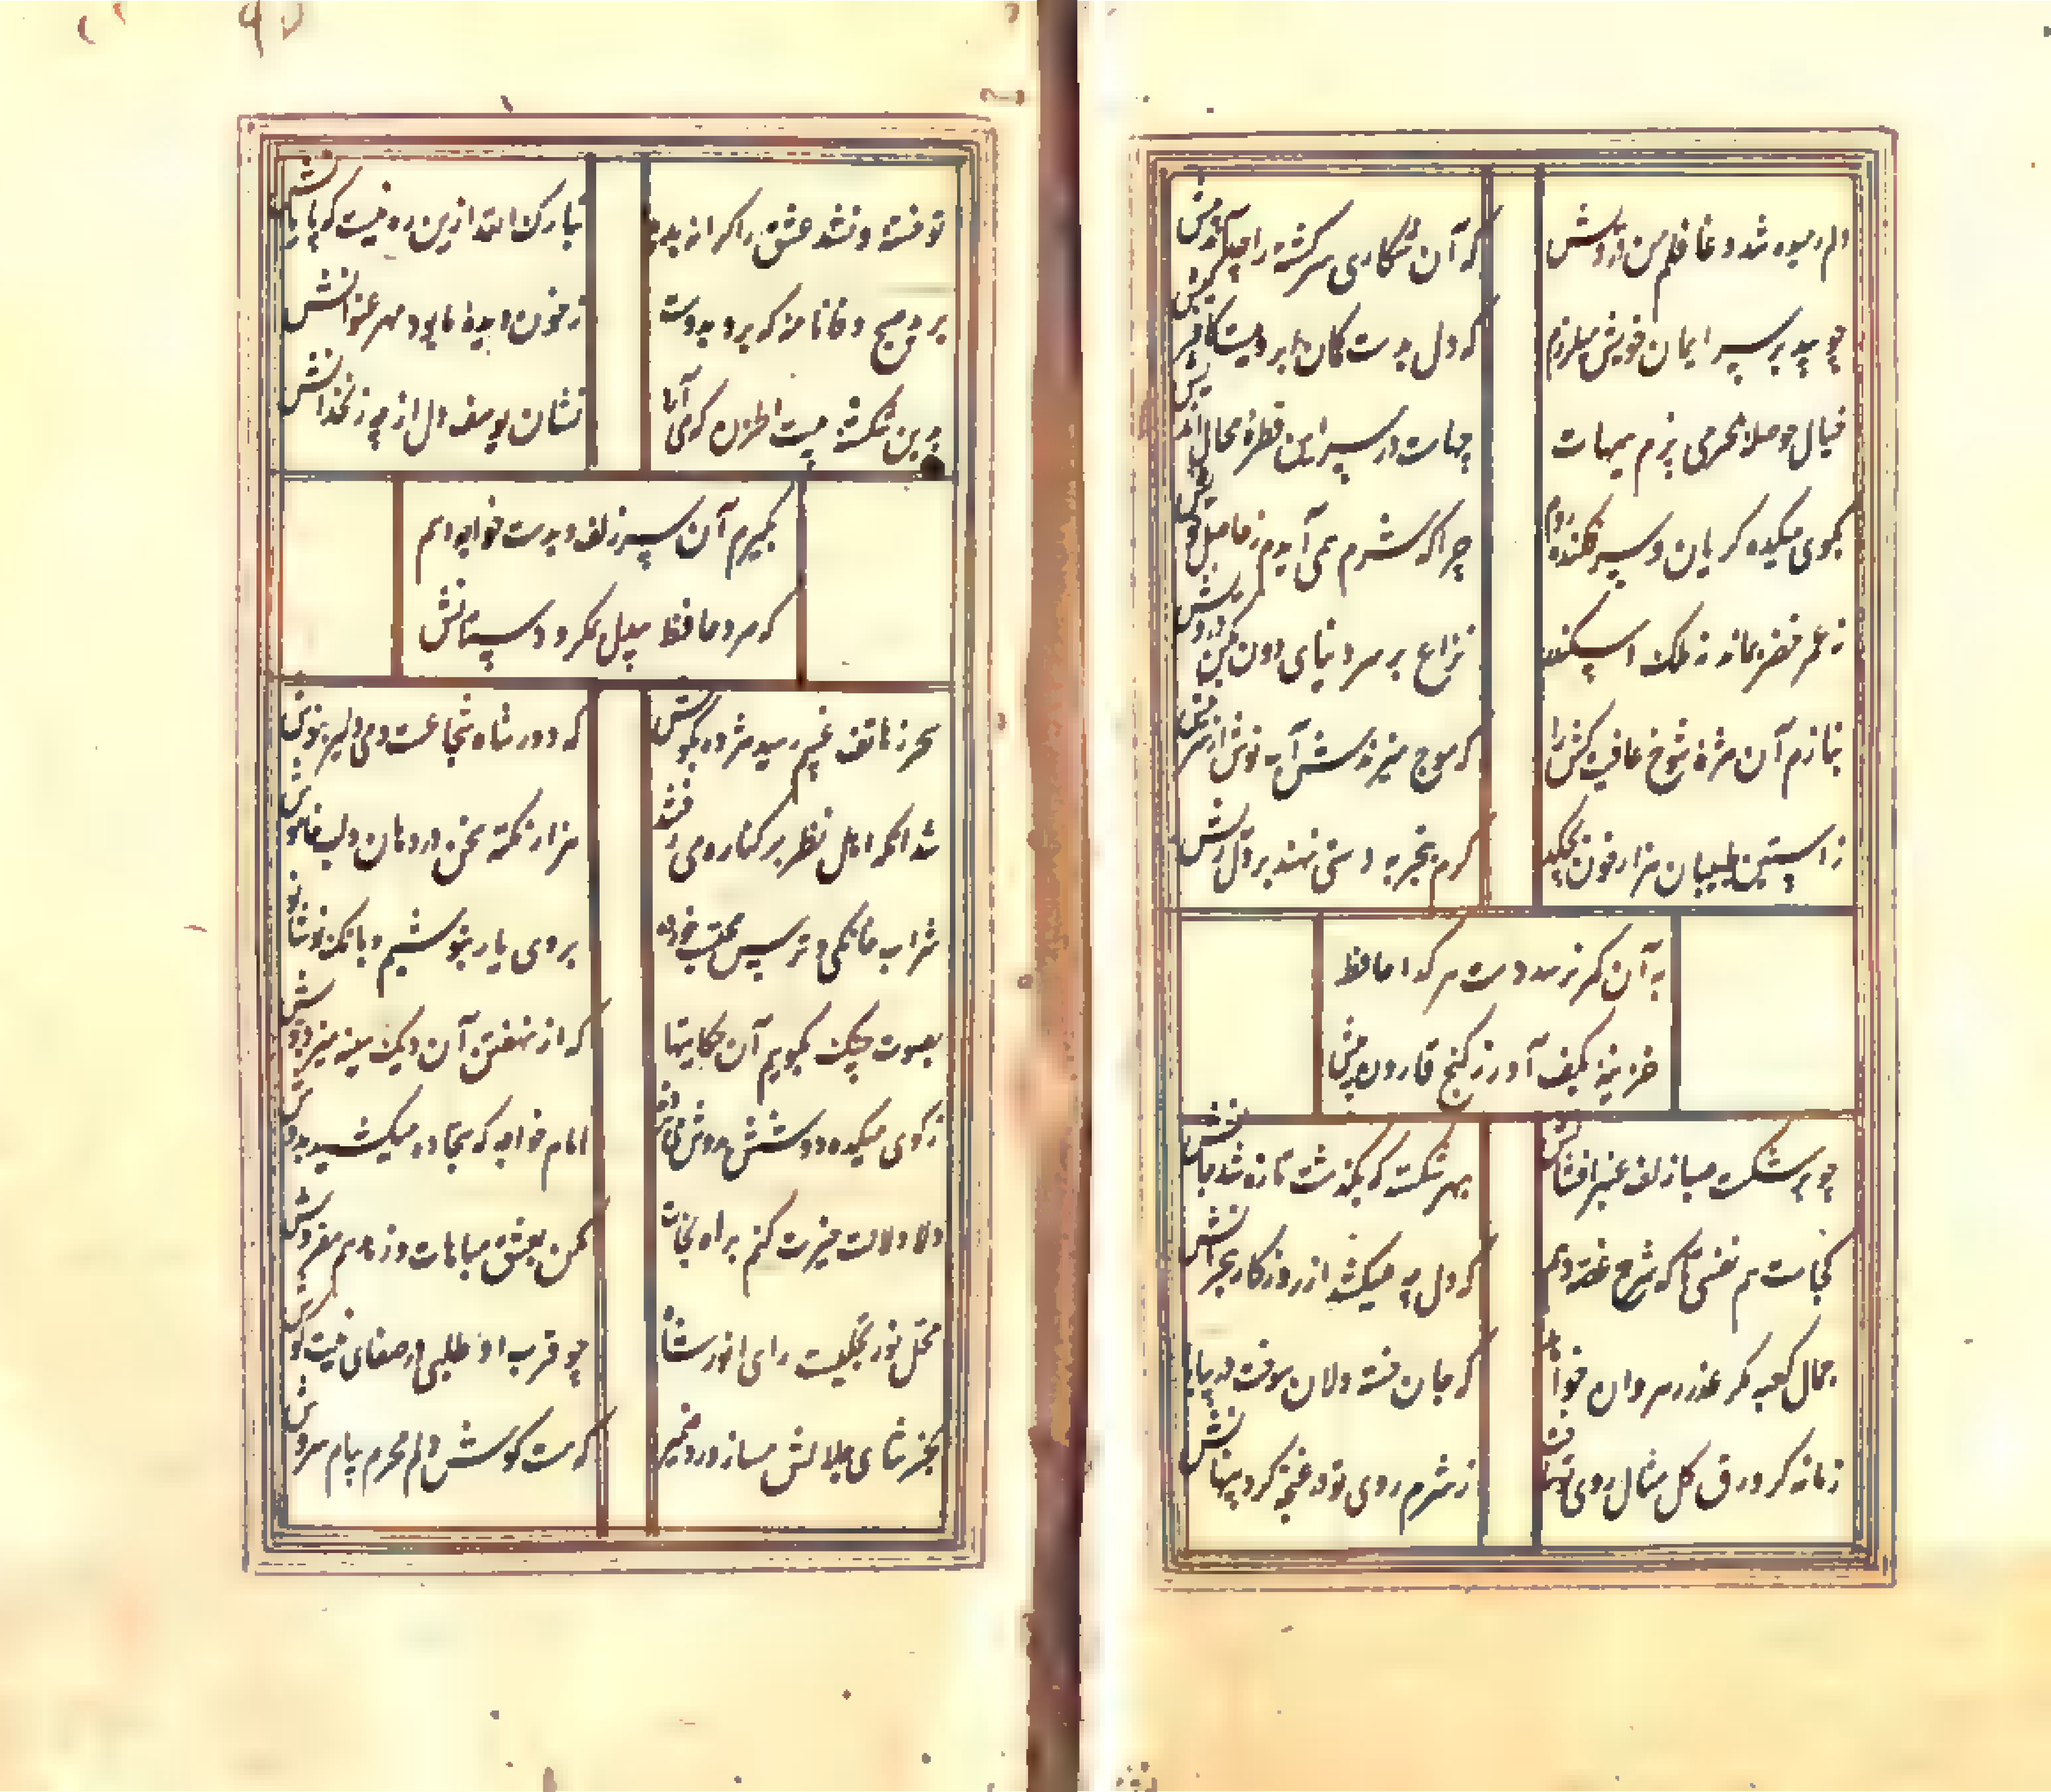 دلم رمیده شد و غافلم من درویش
که آن شکاری سرکشته را چه آمد پیش
چو بید بر سر ایمان خویش میلرزم
که دل بدست کمان ابرو یست کافر کیش
خیال حوصلهٔ بحر می پزم هیهات
چهاست در سر این قطرهٔ محال اندیش
بکوی میکده کریان و سرفکنده روم
چرا که شرم همی آیدم ز حاصل خویش
نه عمر خضر بماند نه ملک اسکندر
نزاع بر سر دنیای دون مکن درویش
بنازم آن مژهٔ شوخ عافیت کش را
که موج میزندش آب نوش بر سر نیش
ز آستین طبیبان هزار خون بچکد
کرم بتجربه دستی نهند بر دل ریش
به آن کمر نرسد دست هر کدا حافظ
خزینهٔ بکف آور ز کنج قارون بیش
چو بر شکست صبا زلف عنبر افشانش
بهر شکسته که بکذشت تازه شد جانش
کجاست هم نفسی تا که شرح غصه دهم
که دل چه میکشد از روزکار هجرانش
جمال کعبه مکر عذر رهروان خواهد
که جان خسته دلان سوخت در بیابانش
زمانه کر ورق کل مثال روی تو بست
ز شرم روی تو در غنچه کرد پنهانش
تو خسته و نشد عشق را کرانه پدید
تبارک الله ازین ره نیست که پایانش
برید صبح وفا نامهٔ که برد بدوست
ز خون دیدهٔ ما بود مهر عنوانش
بدین شکستهٔ بیت الحزن که می آرد
نشان یوسف دل از چه زنخدانش
بگیرم آن سر زلف و بدست خواجه دهم
که مرد حافظ بیدل ز مکر و دستانش
سحر ز هاتف غیبم رسید مژده بکوش
که دور شاه شجاعست و می دلیر بنوش
شد آنکه اهل نظر بر کناره می رفتند
هزار نکته سخن در دهان و لب خاموش
شراب خانکی و ترس محتسب خورده
بروی یار بنوشیم و بانک نوشانوش
بصوت چنک بکوییم آن حکایتها
که از نهفتن آن دیک سینه میزد جوش
ز کوی میکده دوشش بدوش می بردند
امام خواجه که سجاده میکشید بدوش
دلا دلالت خیرت کنم براه نجات
مکن بفسق مباهات و زهد هم مفروش
محل نور تجلیست رای انور شاه
چو قرب او طلبی در صفای نیت کوش
بجز ثنای جلالش مساز ورد ضمیر
که هست کوش دلم محرم پیام سروش